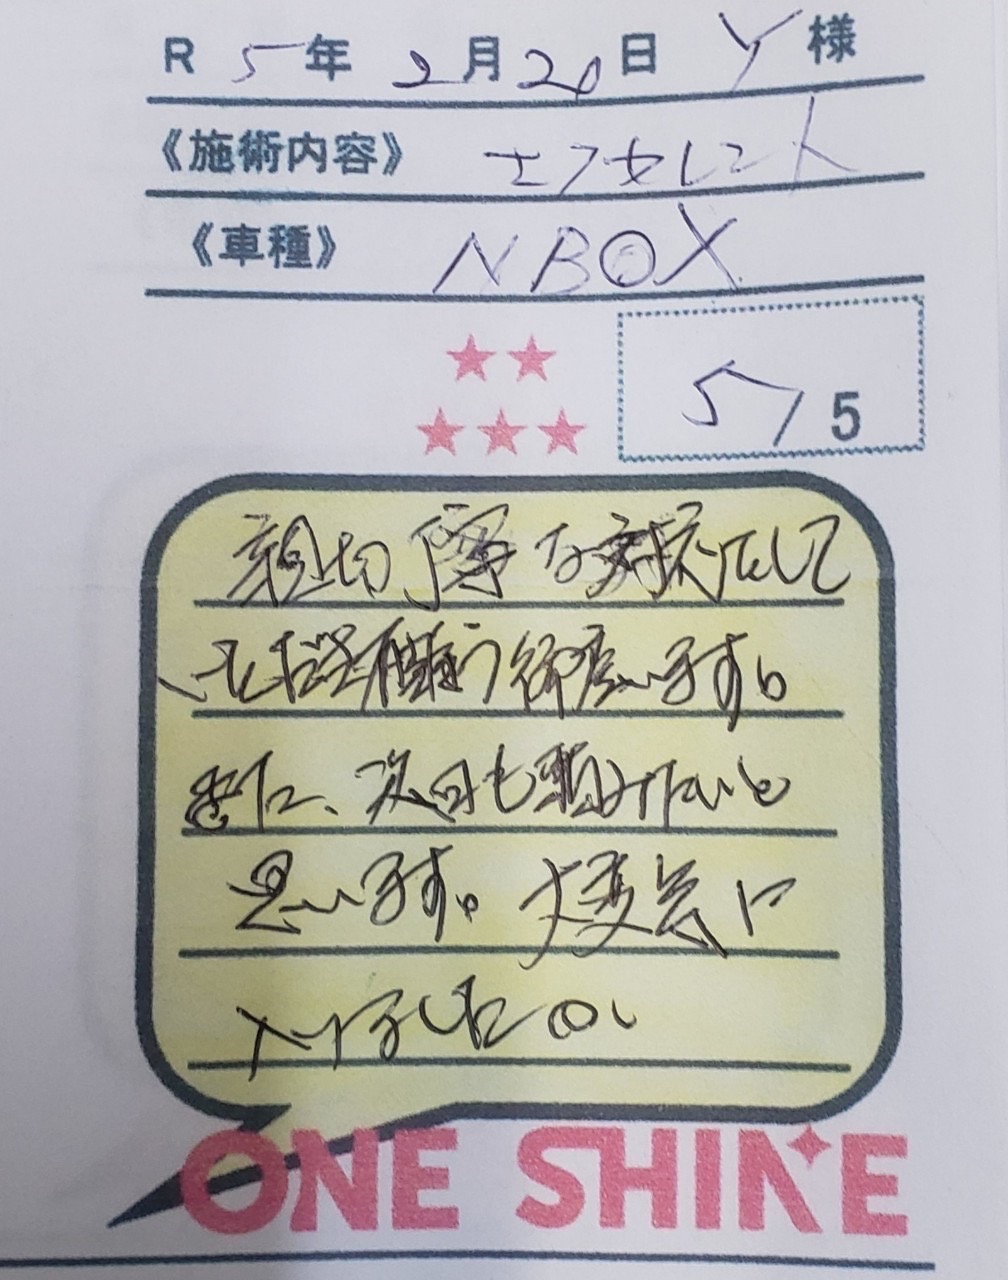 R 5年 2月20日 Y様
《施術内容》
《車種》 NBOX
5/5
親切丁寧な対応をして
いただき有難う御座います。
また、次回も頼みたいと
思います。大変気に
入りました
ONE SHINE